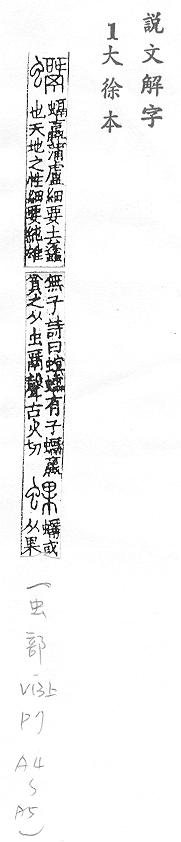 說文解字
1大徐本
蠃蒲盧細要土蠭
也天地之性細要純雄
無子詩曰螟蠕有子蠃
負之从虫聲古火切
蜾
或
从果
（虫部 V13上 P7 A4～A5）